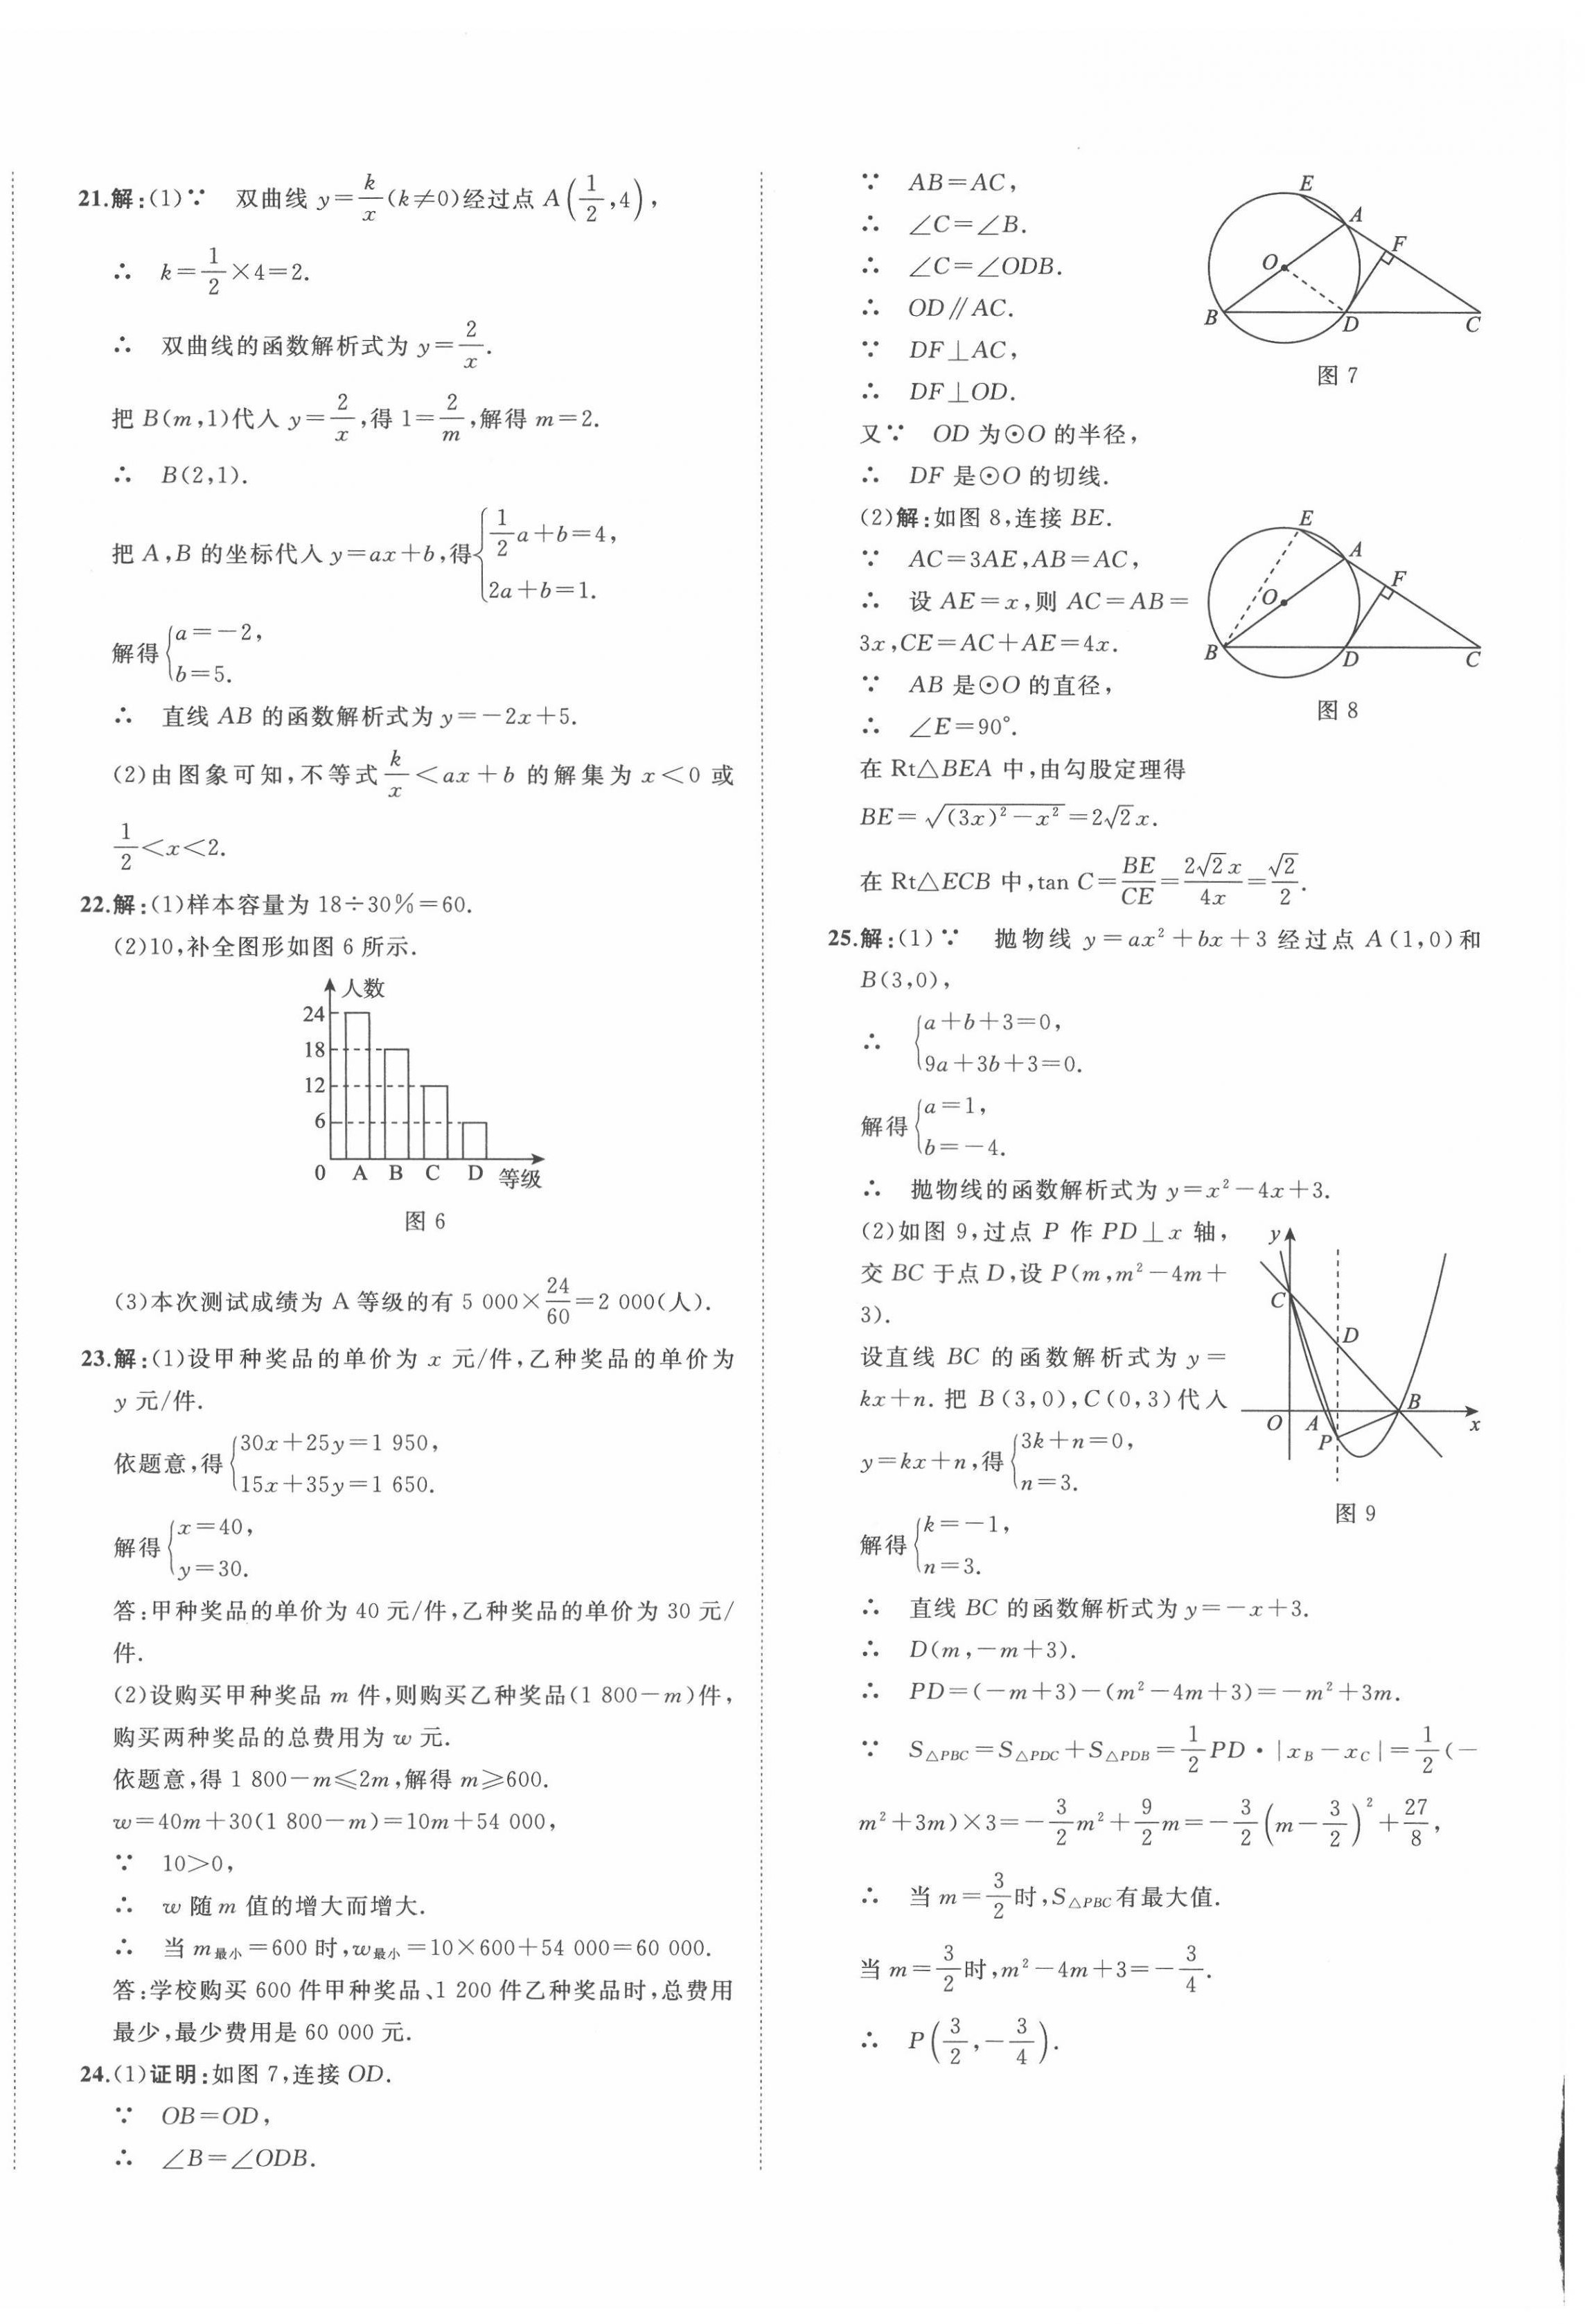 21.解:(1)∵ 双曲线 y=k/x(k≠0)经过点 A(1/2,4),
∴ k=1/2×4=2.
∴ 双曲线的函数解析式为 y=2/x.
把 B(m,1)代入 y=2/x,得 1=2/m,解得 m=2.
∴ B(2,1).
把 A,B 的坐标代入 y=ax+b,得{1/2a+b=4,
2a+b=1.
解得{a=-2,
b=5.
∴ 直线 AB 的函数解析式为 y=-2x+5.
(2)由图象可知,不等式 k/x<ax+b 的解集为 x<0 或
1/2<x<2.
22.解:(1)样本容量为 18÷30%=60.
(2)10,补全图形如图 6 所示.
人数
24
18
12
6
0 A B C D 等级
图 6
(3)本次测试成绩为 A 等级的有 5 000×24/60=2 000(人).
23.解:(1)设甲种奖品的单价为 x 元/件,乙种奖品的单价为
y 元/件.
依题意,得{30x+25y=1 950,
15x+35y=1 650.
解得{x=40,
y=30.
答:甲种奖品的单价为 40 元/件,乙种奖品的单价为 30 元/
件.
(2)设购买甲种奖品 m 件,则购买乙种奖品(1 800-m)件,
购买两种奖品的总费用为 w 元.
依题意,得 1 800-m≤2m,解得 m≥600.
w=40m+30(1 800-m)=10m+54 000,
∵ 10>0,
∴ w 随 m 值的增大而增大.
∴ 当 m最小=600 时,w最小=10×600+54 000=60 000.
答:学校购买 600 件甲种奖品、1 200 件乙种奖品时,总费用
最少,最少费用是 60 000 元.
24.(1)证明:如图 7,连接 OD.
∵ OB=OD,
∴ ∠B=∠ODB.
∵ AB=AC,
∴ ∠C=∠B.
∴ ∠C=∠ODB.
∴ OD∥AC.
∵ DF⊥AC,
∴ DF⊥OD.
又∵ OD 为⊙O 的半径,
∴ DF 是⊙O 的切线.
E
A
F
O
B D C
图 7
(2)解:如图 8,连接 BE.
∵ AC=3AE,AB=AC,
∴ 设 AE=x,则 AC=AB=
3x,CE=AC+AE=4x.
∵ AB 是⊙O 的直径,
∴ ∠E=90°.
E
A
F
O
B D C
图 8
在 Rt△BEA 中,由勾股定理得
BE=√((3x)²-x²)=2√2x.
在 Rt△ECB 中,tan C=BE/CE=2√2x/4x=√2/2.
25.解:(1)∵ 抛物线 y=ax²+bx+3 经过点 A(1,0)和
B(3,0),
∴ {a+b+3=0,
9a+3b+3=0.
解得{a=1,
b=-4.
∴ 抛物线的函数解析式为 y=x²-4x+3.
(2)如图 9,过点 P 作 PD⊥x 轴,
交 BC 于点 D,设 P(m,m²-4m+
3).
设直线 BC 的函数解析式为 y=
kx+n.把 B(3,0),C(0,3)代入
y=kx+n,得{3k+n=0,
n=3.
y
C
D
B
O A x
P
图 9
解得{k=-1,
n=3.
∴ 直线 BC 的函数解析式为 y=-x+3.
∴ D(m,-m+3).
∴ PD=(-m+3)-(m²-4m+3)=-m²+3m.
∵ S△PBC=S△PDC+S△PDB=1/2PD·|xB-xC|=1/2(-
m²+3m)×3=-3/2m²+9/2m=-3/2(m-3/2)²+27/8,
∴ 当 m=3/2时,S△PBC有最大值.
当 m=3/2时,m²-4m+3=-3/4.
∴ P(3/2,-3/4).